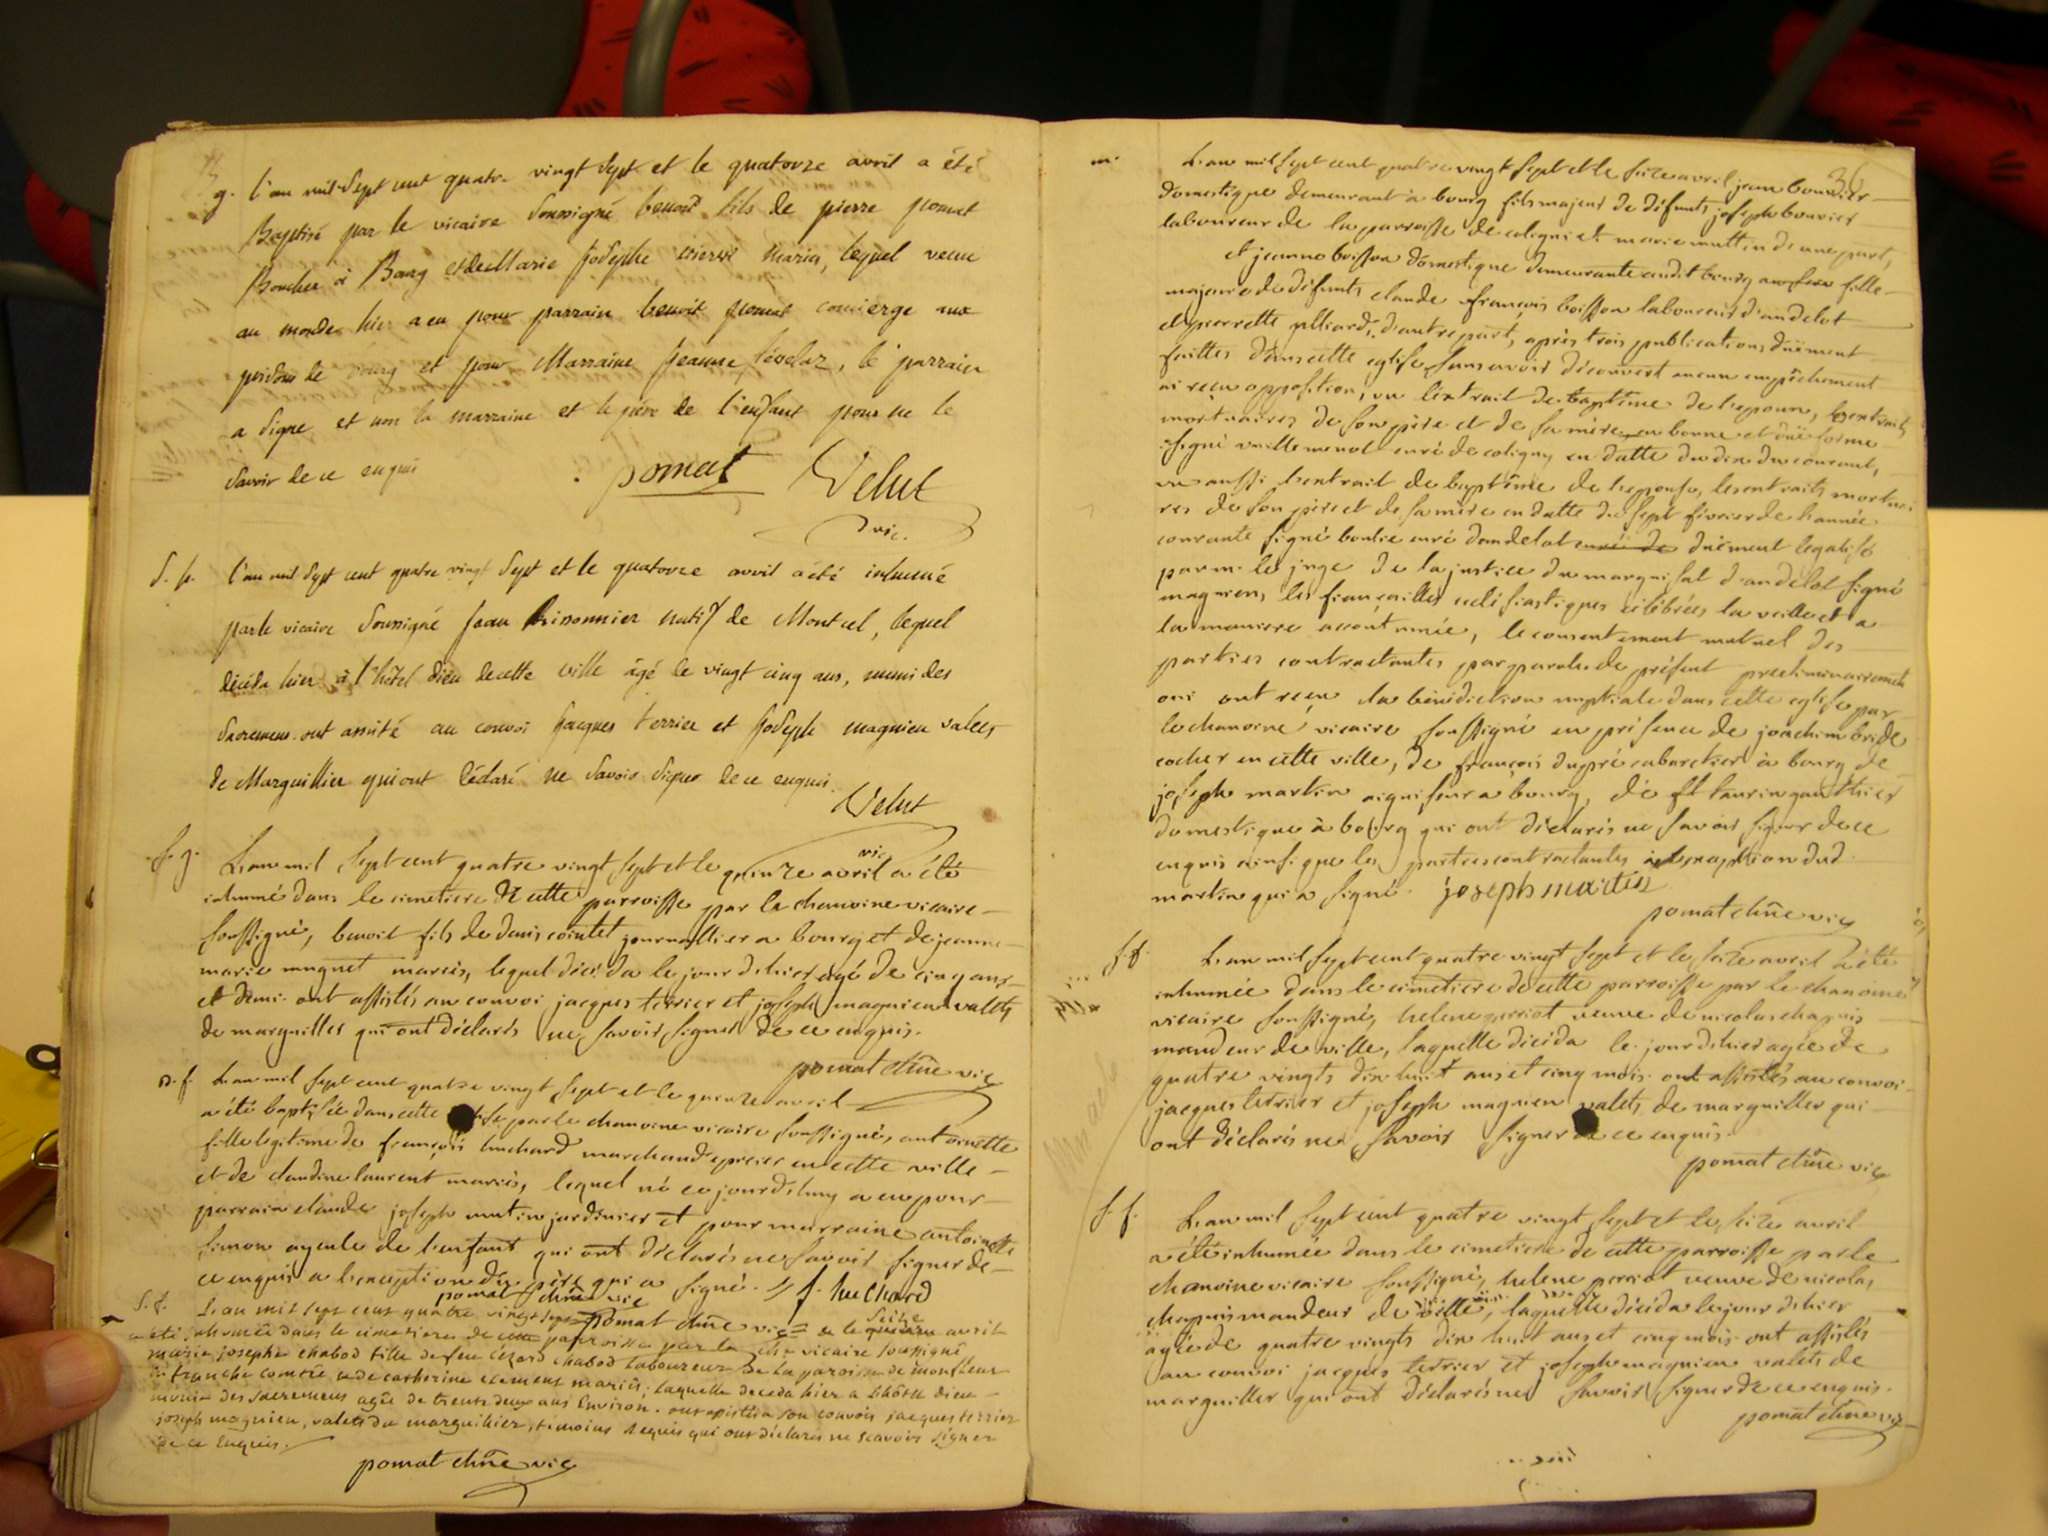 g. l'an mil sept cent quatre vingt sept et le quatorze avril a été
Baptisé par le vicaire soussigné benoit fils de pierre pomat
Boucher à Bourg et de Marie josephe mariés, lequel venu
au monde hier a eu pour parrain benoit pomat concierge aux
prisons de bourg et pour Marraine jeanne, le parrain
a signé et non la marraine et le père de l'enfant pour ne le
savoir de ce enquis
pomat Velut
vic.
S. p. l'an mil sept cent quatre vingt sept et le quatorze avril a été inhumé
par le vicaire soussigné jean prisonnier natif de Montcel, lequel
décéda hier à l'hôtel dieu de cette ville âgé de vingt cinq ans, muni des
sacremens. ont assisté au convoi jacques terrier et joseph magnien valets
de Marguillier qui ont déclaré ne savoir signer de ce enquis.
Velut
vic
S. g. L'an mil sept cent quatre vingt sept et le quinze avril a été
inhumé dans le cimetiere de cette parroisse par le chanoine vicaire
soussigné, benoit fils de denis cointet journallier a bourg et de jeanne
marie muguet mariés, lequel décéda le jour d'hier agé de cinq ans
et demi. ont assistés au convoi jacques terrier et joseph magnien valets
de marguillier qui ont déclarés ne savoir signer de ce enquis.
pomat chñe vic
n. f. L'an mil sept cent quatre vingt sept et le quinze avril
a été baptisée dans cette par le chanoine vicaire soussigné, antoinette
fille legitime de françois huchard marchand epicier en cette ville
et de claudine laurent mariés, lequel né ce jourd'huy a eu pour
parrain claude joseph mutin jardinier et pour marraine antoinette
simon ayeule de l'enfant qui ont déclarés ne savoir signer de
ce enquis a l'exception du père qui a signé. f. huchard
pomat chñe vic
S. f. L'an mil sept cent quatre vingt sept pomat chñe vic et le seize quinze avril
a été inhumée dans le cimetiere de cette parroisse par le chñe vicaire soussigné
marie josephe chabod fille de feu chabod laboureur de la paroisse de monfleur
en franche comtée et de catherine clement mariés, laquelle deceda hier a l'hôtel dieu
munie des sacremens agée de trente deux ans environ. ont assisté a son convoi jacques terrier
joseph magnien, valets du marguillier, témoins requis qui ont déclarés ne scavoir signer
de ce enquis.
pomat chñe vic
36
m. L'an mil sept cent quatre vingt sept et le seize avril jean bouvier
domestique demeurant à bourg fils majeur de défunts joseph bouvier
laboureur de la parroisse de coligni et marie muttin d'une part,
et jeanne boisson domestique demeurante audit bourg fille
majeure de défunts claude françois boisson laboureur d'andelot
et pierrette d'autre part, après trois publications dûëment
faittes dans cette eglise sans avoir découvert aucun empêchement
ni reçu opposition, vu l'extrait de baptême de l'epoux, les extraits
mortuaires de son père et de sa mère en bonne et düe forme
signé curé de coligny en datte du dix du courant,
vu aussi l'extrait de baptême de l'epouse, les extraits mortuai
res de son père et de sa mère en datte du sept février de l'année
courante signé curé d'andelot curé de duëment legalisé
par m. le juge de la justice du marquisat d'andelot signé
magnien, les fiançailles ecclésiastiques célébrées la veille et a
la maniere accoutumée, le consentement mutuel des
parties contractantes par parole de présent preliminairement
oui ont reçu la bénédiction nuptiale dans cette eglise par
le chanoine vicaire soussigné en présence de joachim bride
cocher en cette ville, de françois dupré cabaretier à bourg de
joseph martin aiguiseur a bourg, de laurin gauthier
domestique à bourg qui ont déclarés ne savoir signer de ce
enquis ainsi que les parties contractantes à l'exception dud.
martin qui a signé. joseph martin
pomat chñe vic
S. f. L'an mil sept cent quatre vingt sept et le seize avril a été
inhumée dans le cimetiere de cette parroisse par le chanoine
vicaire soussigné, helene perriot veuve de nicolas chapuis
mandeur de ville, laquelle décéda le jour d'hier agée de
quatre vingts dix huit ans et cinq mois. ont assistés au convoi
jacques terrier et joseph magnien valets de marguillier qui
ont déclarés ne savoir signer de ce enquis.
pomat chñe vic
S. f. L'an mil sept cent quatre vingt sept et le seize avril
a été inhumée dans le cimetiere de cette parroisse par le
chanoine vicaire soussigné, helene perriot veuve de nicolas
chapuis mandeur de ville, laquelle décéda le jour d'hier
agée de quatre vingts dix huit ans et cinq mois. ont assistés
au convoi jacques terrier et joseph magnien valets de
marguillier qui ont déclarés ne savoir signer de ce enquis.
pomat chñe vic